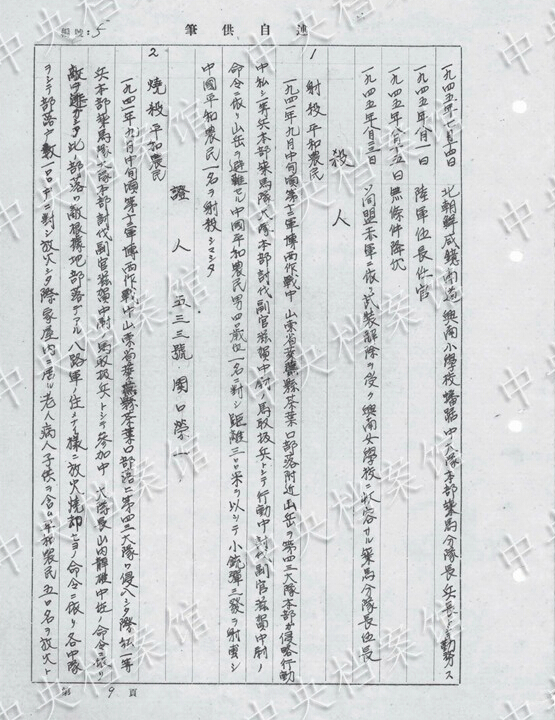 述自供筆
編號:5
一九四五年七月十四日 北朝鮮咸鏡南道興南小學校 大隊本部乗馬分隊長 兵長トシ勤務ス
一九四五年八月一日 陸軍伍長任官
一九四五年八月十五日 無條件降伏
一九四五年八月三日 ソ同盟赤軍ニ依リ武装解除ヲ受ケ興南女學校ニ收容サル乗馬分隊長伍長
殺人
1 射殺平和農民
一九四一年九月中旬頃第十二軍博西作戰中山東省萊蕪縣茶葉口部落附近山岳ヲ第四三大隊本部ガ侵略行動
中私シ一等兵本部乗馬隊大隊本部討伐副官滋賀中尉ノ馬取扱兵トシテ行動中討伐副官滋賀中尉ノ
命令ニ依リ山岳ヲ避難セル中國平和農民男四〇歳位一名ニ對シ距離三〇〇米ヲ以シテ小銃彈三發ヲ射撃シ
中國平和農民一名ヲ射殺シマシタ
證人 五三三號 関口榮一
2 燒殺平和農民
一九四一年九月中旬頃第十二軍博西作戰中山東省萊蕪縣茶葉口部落ニ第四三大隊ハ侵入シタ際私一等
兵本部乗馬隊大隊本部討伐副官滋賀中尉ノ馬取扱兵トシテ參加中 大隊長山内静雄中佐ノ命令ニ依リ
敵ヲ逃ガシタ 此ノ部落ハ敵根據地部落デアル八路軍ノ住メナイ様ニ放火燒却セヨノ命令ニ依リ各中隊
ヲシテ部落戸數一〇〇戸ニ對シ放火シタ際家屋内ニ居ル老人病人子供ヲ含ム平和農民五〇名ヲ放火ト
第9頁
中央档案馆